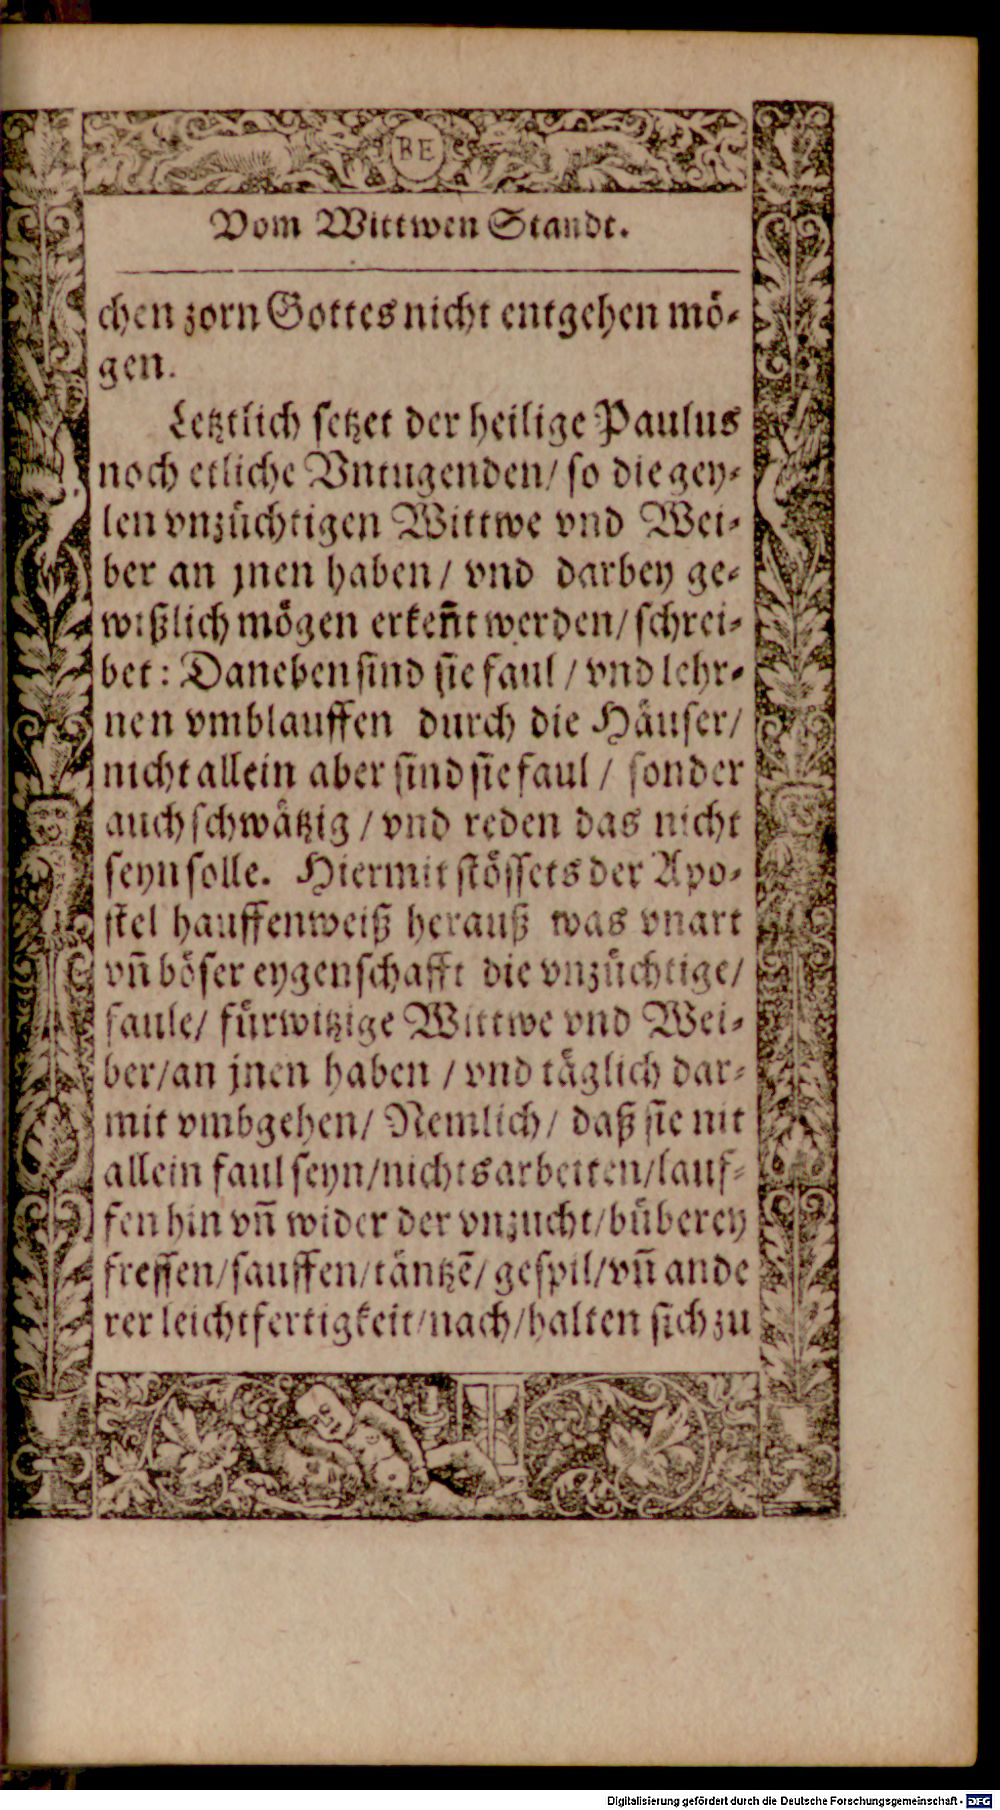 BE
Vom Wittwen Standt.
chen zorn Gottes nicht entgehen mö-
gen.
Letztlich setzet der heilige Paulus
noch etliche Vntugenden/ so die gey-
len vnzüchtigen Wittwe vnd Wei-
ber an jnen haben/ vnd darbey ge-
wißlich mögen erkeñt werden/ schrei-
bet: Daneben sind sie faul/ vnd lehr-
nen vmblauffen durch die Häuser/
nicht allein aber sind sie faul/ sonder
auch schwätzig/ vnd reden das nicht
seyn solle. Hiermit stössets der Apo-
stel hauffenweiß herauß was vnart
vñ böser eygenschafft die vnzüchtige/
faule/ fürwitzige Wittwe vnd Wei-
ber/ an jnen haben/ vnd täglich dar-
mit vmbgehen/ Nemlich/ daß sie nit
allein faul seyn/ nichts arbeiten/ lauf-
fen hin vñ wider der vnzucht/ büberey
fressen/ sauffen/ täntzē/ gespil/ vñ ande
rer leichtfertigkeit/ nach/ halten sich zu
Digitalisierung gefördert durch die Deutsche Forschungsgemeinschaft - DFG